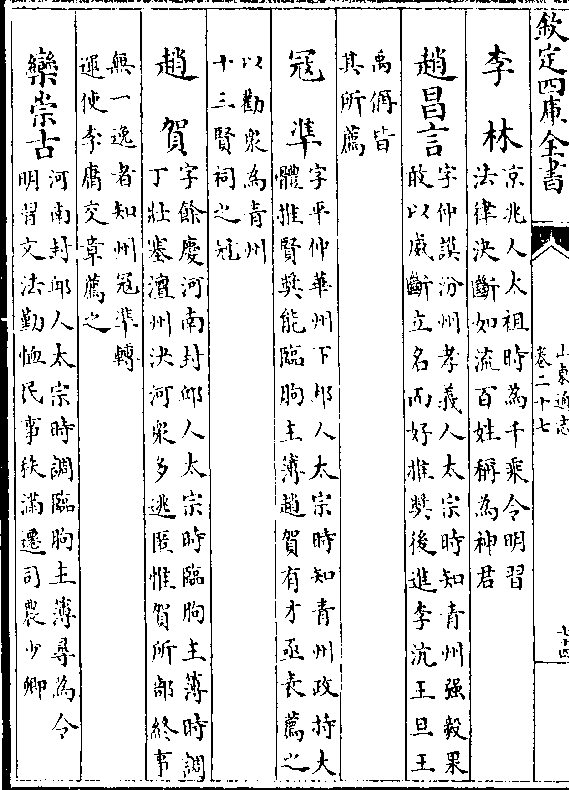 欽定四庫全書
山東通志
卷二十七
七十四
李林
京兆人太祖時為千乘令明習
法律決斷如流百姓稱為神君
趙昌言
字仲謨汾州孝義人太宗時知青州强毅果
敢以威斷立名而好推奬後進李沆王旦王
禹偁皆
其所薦
冦準
字平仲華州下邽人太宗時知青州政持大
體推賢奬能臨朐主簿趙賀有才亟表薦之
以勸衆為青州
十三賢祠之冠
趙賀
字餘慶河南封邱人太宗時臨朐主簿時調
丁壯塞澶州決河衆多逃匿惟賀所部終事
無一逸者知州冦準轉
運使李膺交章薦之
欒崇古
河南封邱人太宗時調臨朐主簿尋為令
明習文法勤恤民事秩滿遷司農少卿